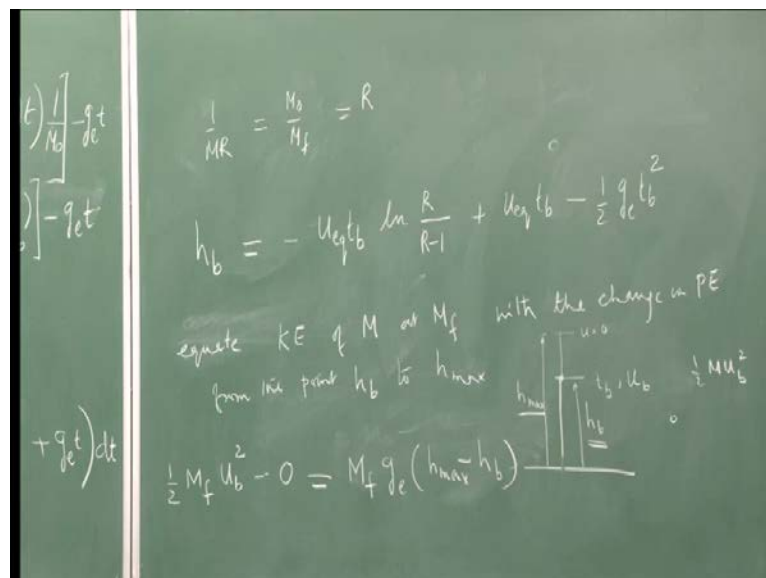 t) 1/M₀] - gₑt
)] - gₑt
+ gₑt) dt
1/MR = M₀/M_f = R
h_b = - u_eq t_b ln R/(R-1) + u_eq t_b - 1/2 gₑ t_b²
equate KE of M at M_f with the change in PE
from the point h_b to h_max
u=0
t_b, u_b 1/2 M u_b²
h_max
h_b
1/2 M_f u_b² - 0 = M_f gₑ (h_max - h_b)